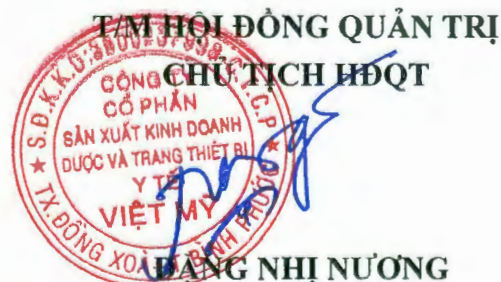 T/M HỘI ĐỒNG QUẢN TRỊ
CHỦ TỊCH HĐQT
CÔNG TY
CỔ PHẦN
SẢN XUẤT KINH DOANH
DƯỢC VÀ TRANG THIẾT BỊ
Y TẾ
VIỆT MỸ
TX. ĐỒNG XOÀI BÌNH PHƯỚC
ĐẶNG NHỊ NƯƠNG